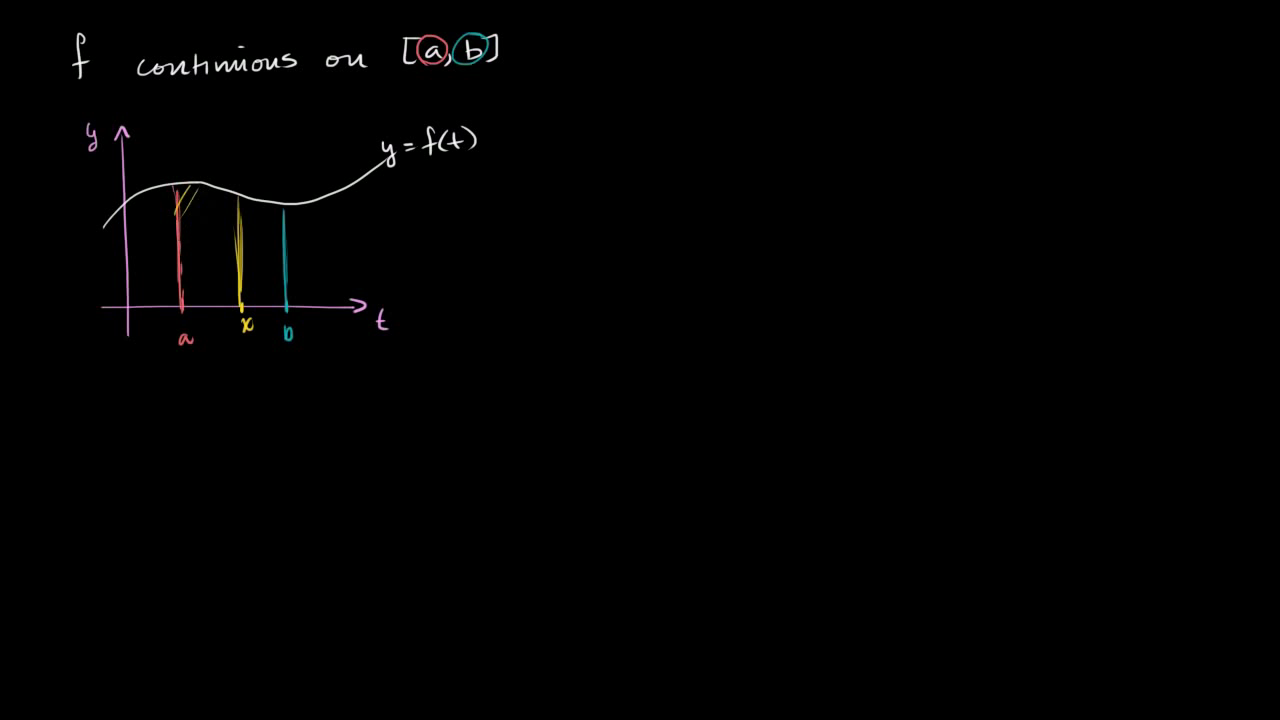 f continuous on [a, b]
y
y = f(t)
t
a x b